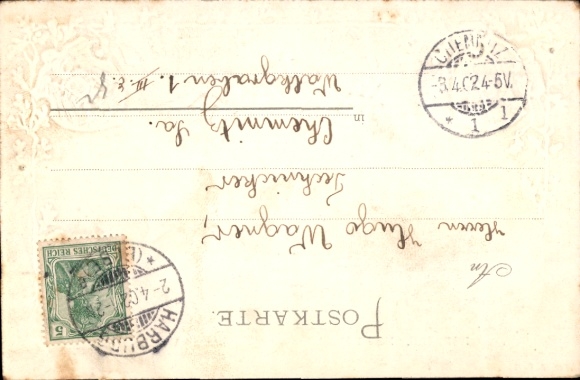 POSTKARTE.
An
Herrn Hugo Wagner,
Technicker
in Chemnitz Sa.
Wallgraben 1. III. E.
DEUTSCHES REICH
5
HARBURG
2-4.02
CHEMNITZ
-3.4.02.4-5V.
* 1 1